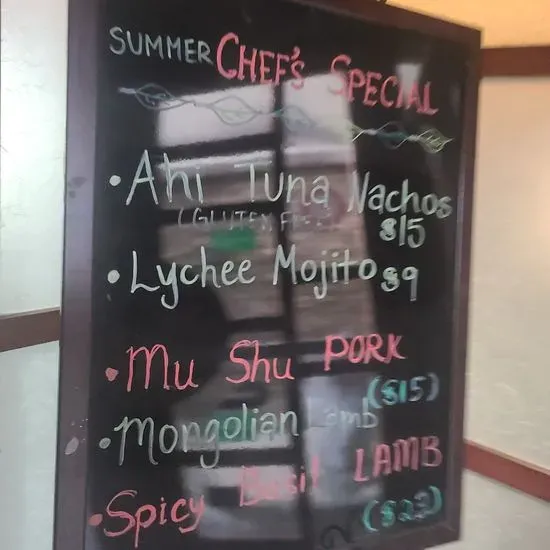 SUMMER CHEF'S SPECIAL
• Ahi Tuna Nachos
(GLUTEN FREE)
$15
• Lychee Mojito $9
• Mu Shu PORK
($15)
• Mongolian Lamb
• Spicy Basil LAMB
($23)